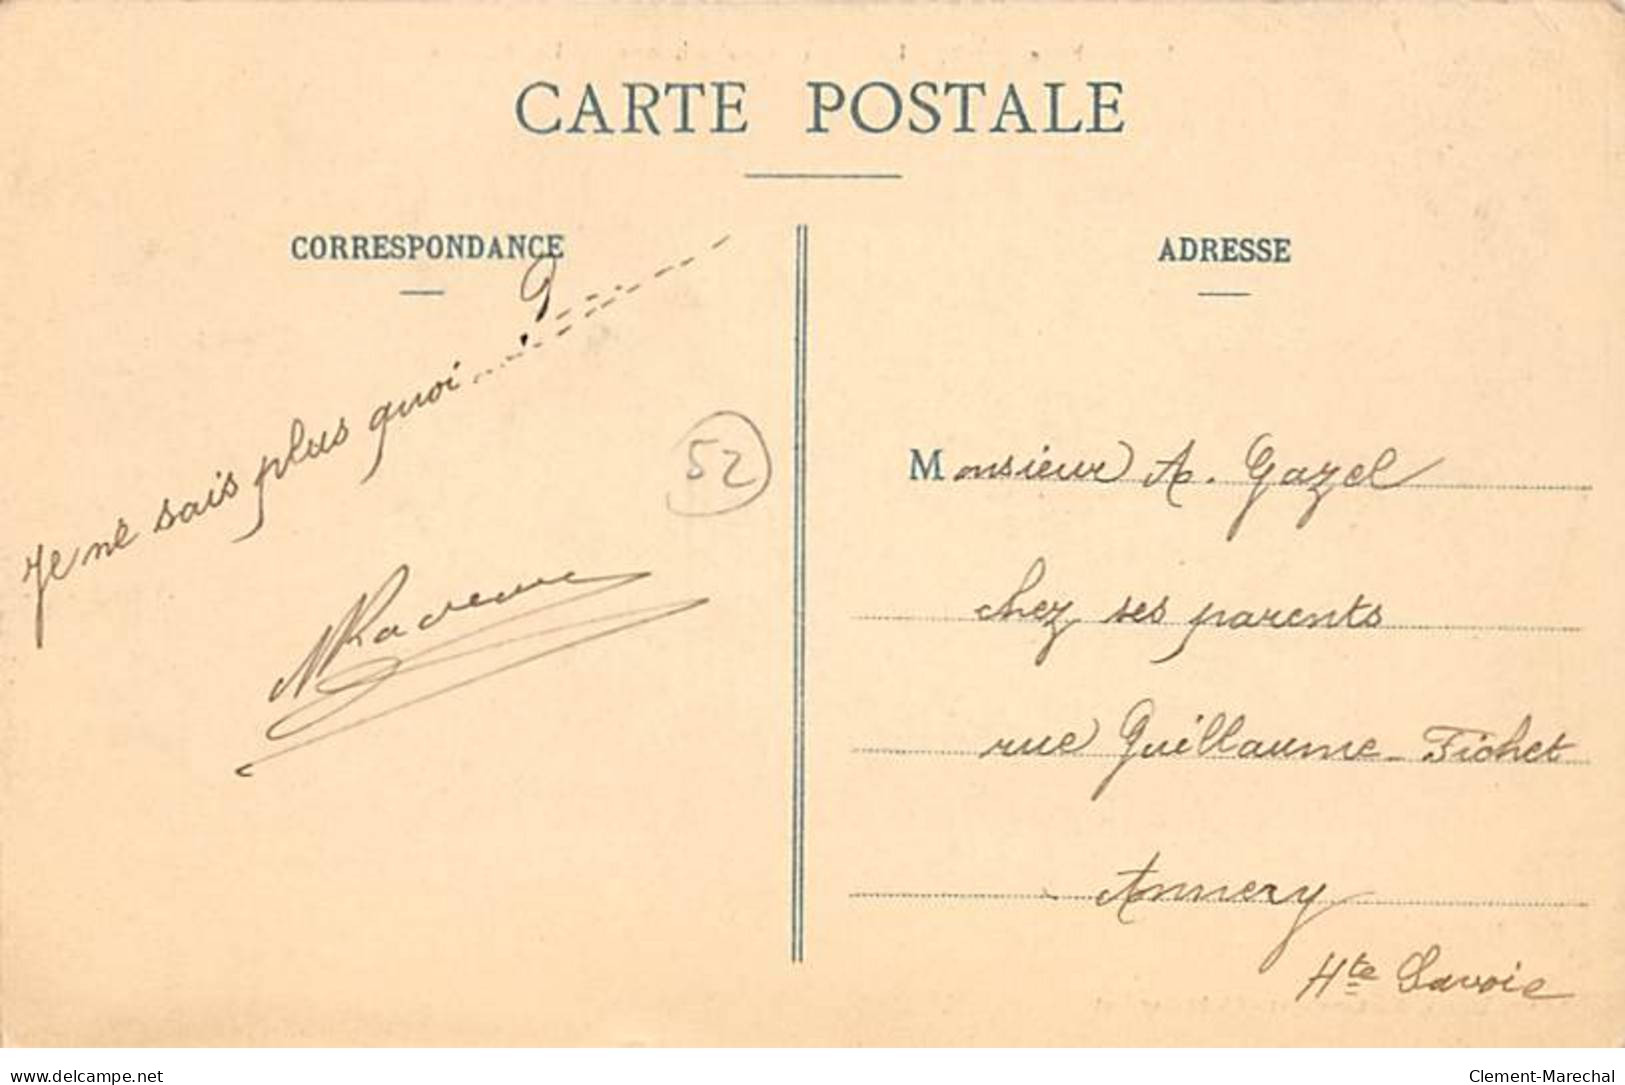 CARTE POSTALE
CORRESPONDANCE
Je ne sais plus quoi ........ ?
52
ADRESSE
Monsieur A. Gazel
chez ses parents
rue Guillaume-Fichet
Annecy
Hte Savoie
www.delcampe.net
Clement-Marechal